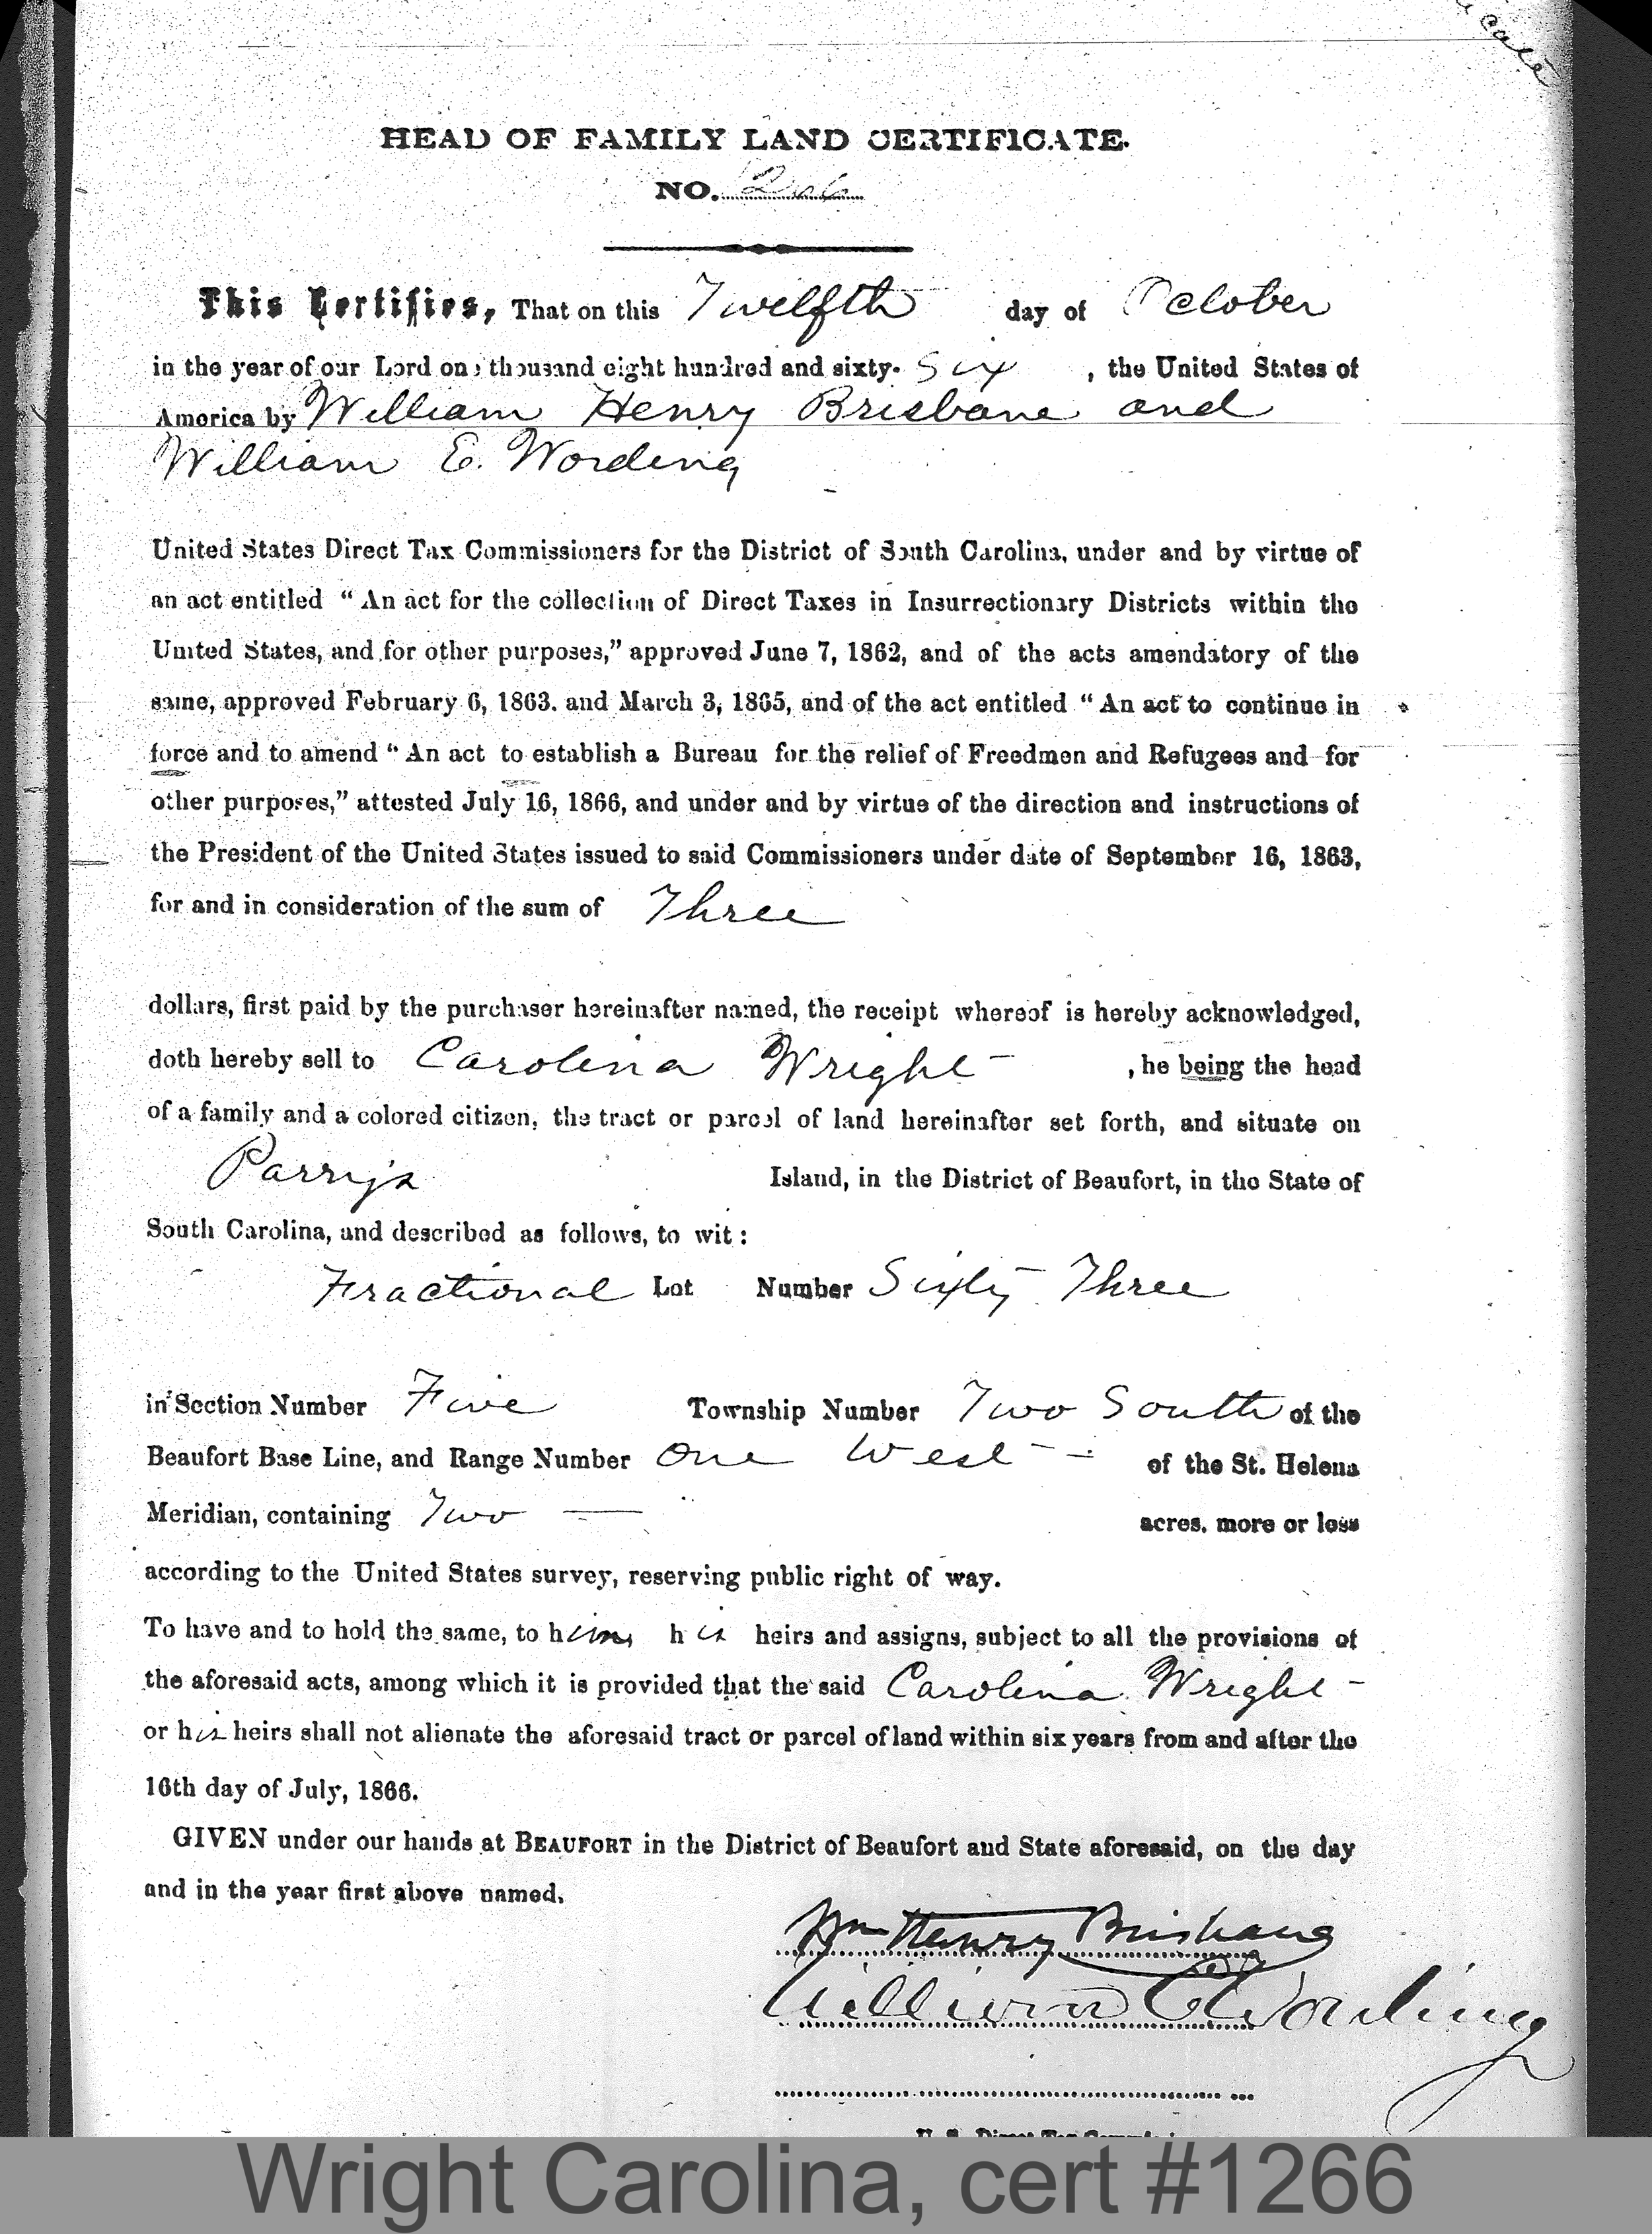 HEAD OF FAMILY LAND CERTIFICATE.
NO.
This Certifies, That on this Twelfth day of October
in the year of our Lord one thousand eight hundred and sixty-Six, the United States of
America by William Henry Brisbane and
William E. Wording
United States Direct Tax Commissioners for the District of South Carolina, under and by virtue of
an act entitled “An act for the collection of Direct Taxes in Insurrectionary Districts within the
United States, and for other purposes,” approved June 7, 1862, and of the acts amendatory of the
same, approved February 6, 1863. and March 3, 1865, and of the act entitled “An act to continue in
force and to amend “An act to establish a Bureau for the relief of Freedmen and Refugees and for
other purposes,” attested July 16, 1866, and under and by virtue of the direction and instructions of
the President of the United States issued to said Commissioners under date of September 16, 1863,
for and in consideration of the sum of Three
dollars, first paid by the purchaser hereinafter named, the receipt whereof is hereby acknowledged,
doth hereby sell to Carolina Wright, he being the head
of a family and a colored citizen, the tract or parcel of land hereinafter set forth, and situate on
Parrys Island, in the District of Beaufort, in the State of
South Carolina, and described as follows, to wit:
Fractional Lot Number Sixty Three
in Section Number Five Township Number Two South of the
Beaufort Base Line, and Range Number One West of the St. Helena
Meridian, containing Two — acres, more or less
according to the United States survey, reserving public right of way.
To have and to hold the same, to him, his heirs and assigns, subject to all the provisions of
the aforesaid acts, among which it is provided that the said Carolina Wright -
or his heirs shall not alienate the aforesaid tract or parcel of land within six years from and after the
16th day of July, 1866.
GIVEN under our hands at BEAUFORT in the District of Beaufort and State aforesaid, on the day
and in the year first above named.
Wm Henry Brisbane
William E Wording
U. S. Direct Tax
Wright Carolina, cert #1266